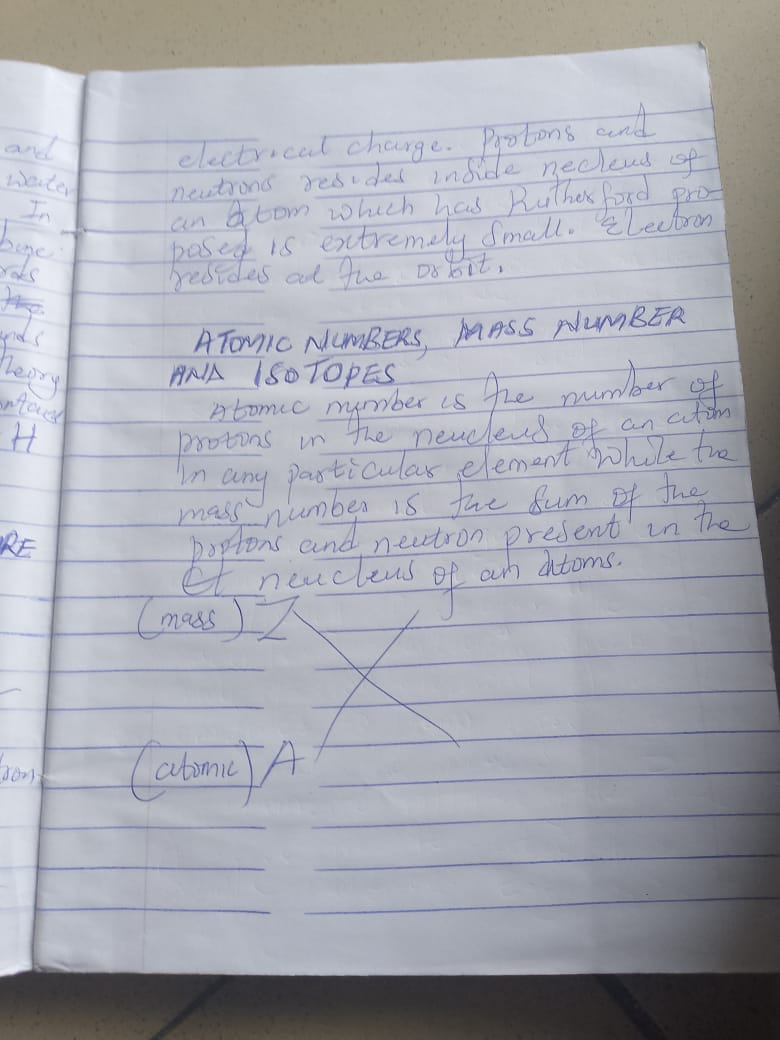 and
water
In
rds
heory
H
RE
electrical charge. Protons and
neutrons resides inside necleus of
an Atom which has Rutherford pro-
posed is extremely small. Electron
resides at the orbit.
ATOMIC NUMBERS, MASS NUMBER
AND ISOTOPES
Atomic number is the number of
protons in the neucleus of an atom
in any particular element while the
mass number is the sum of the
protons and neutron present in the
neucleus of an Atoms.
(mass) Z X
(atomic) A